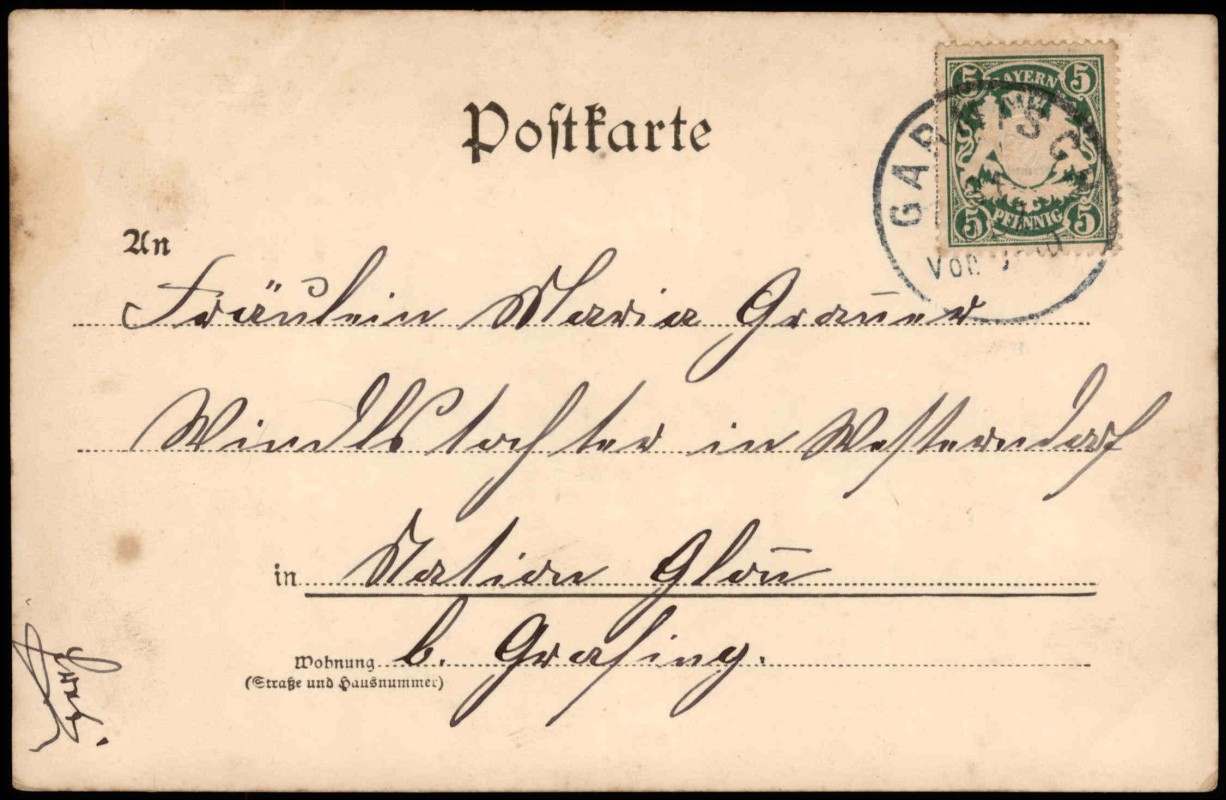 Postkarte
5 BAYERN 5
5 PFENNIG 5
GARMISCH
Vor
An
Fräulein Maria Grauer
Windlstochter in Westerndorf
in Station Glon
b. Grafing.
Wohnung
(Straße und Hausnummer)